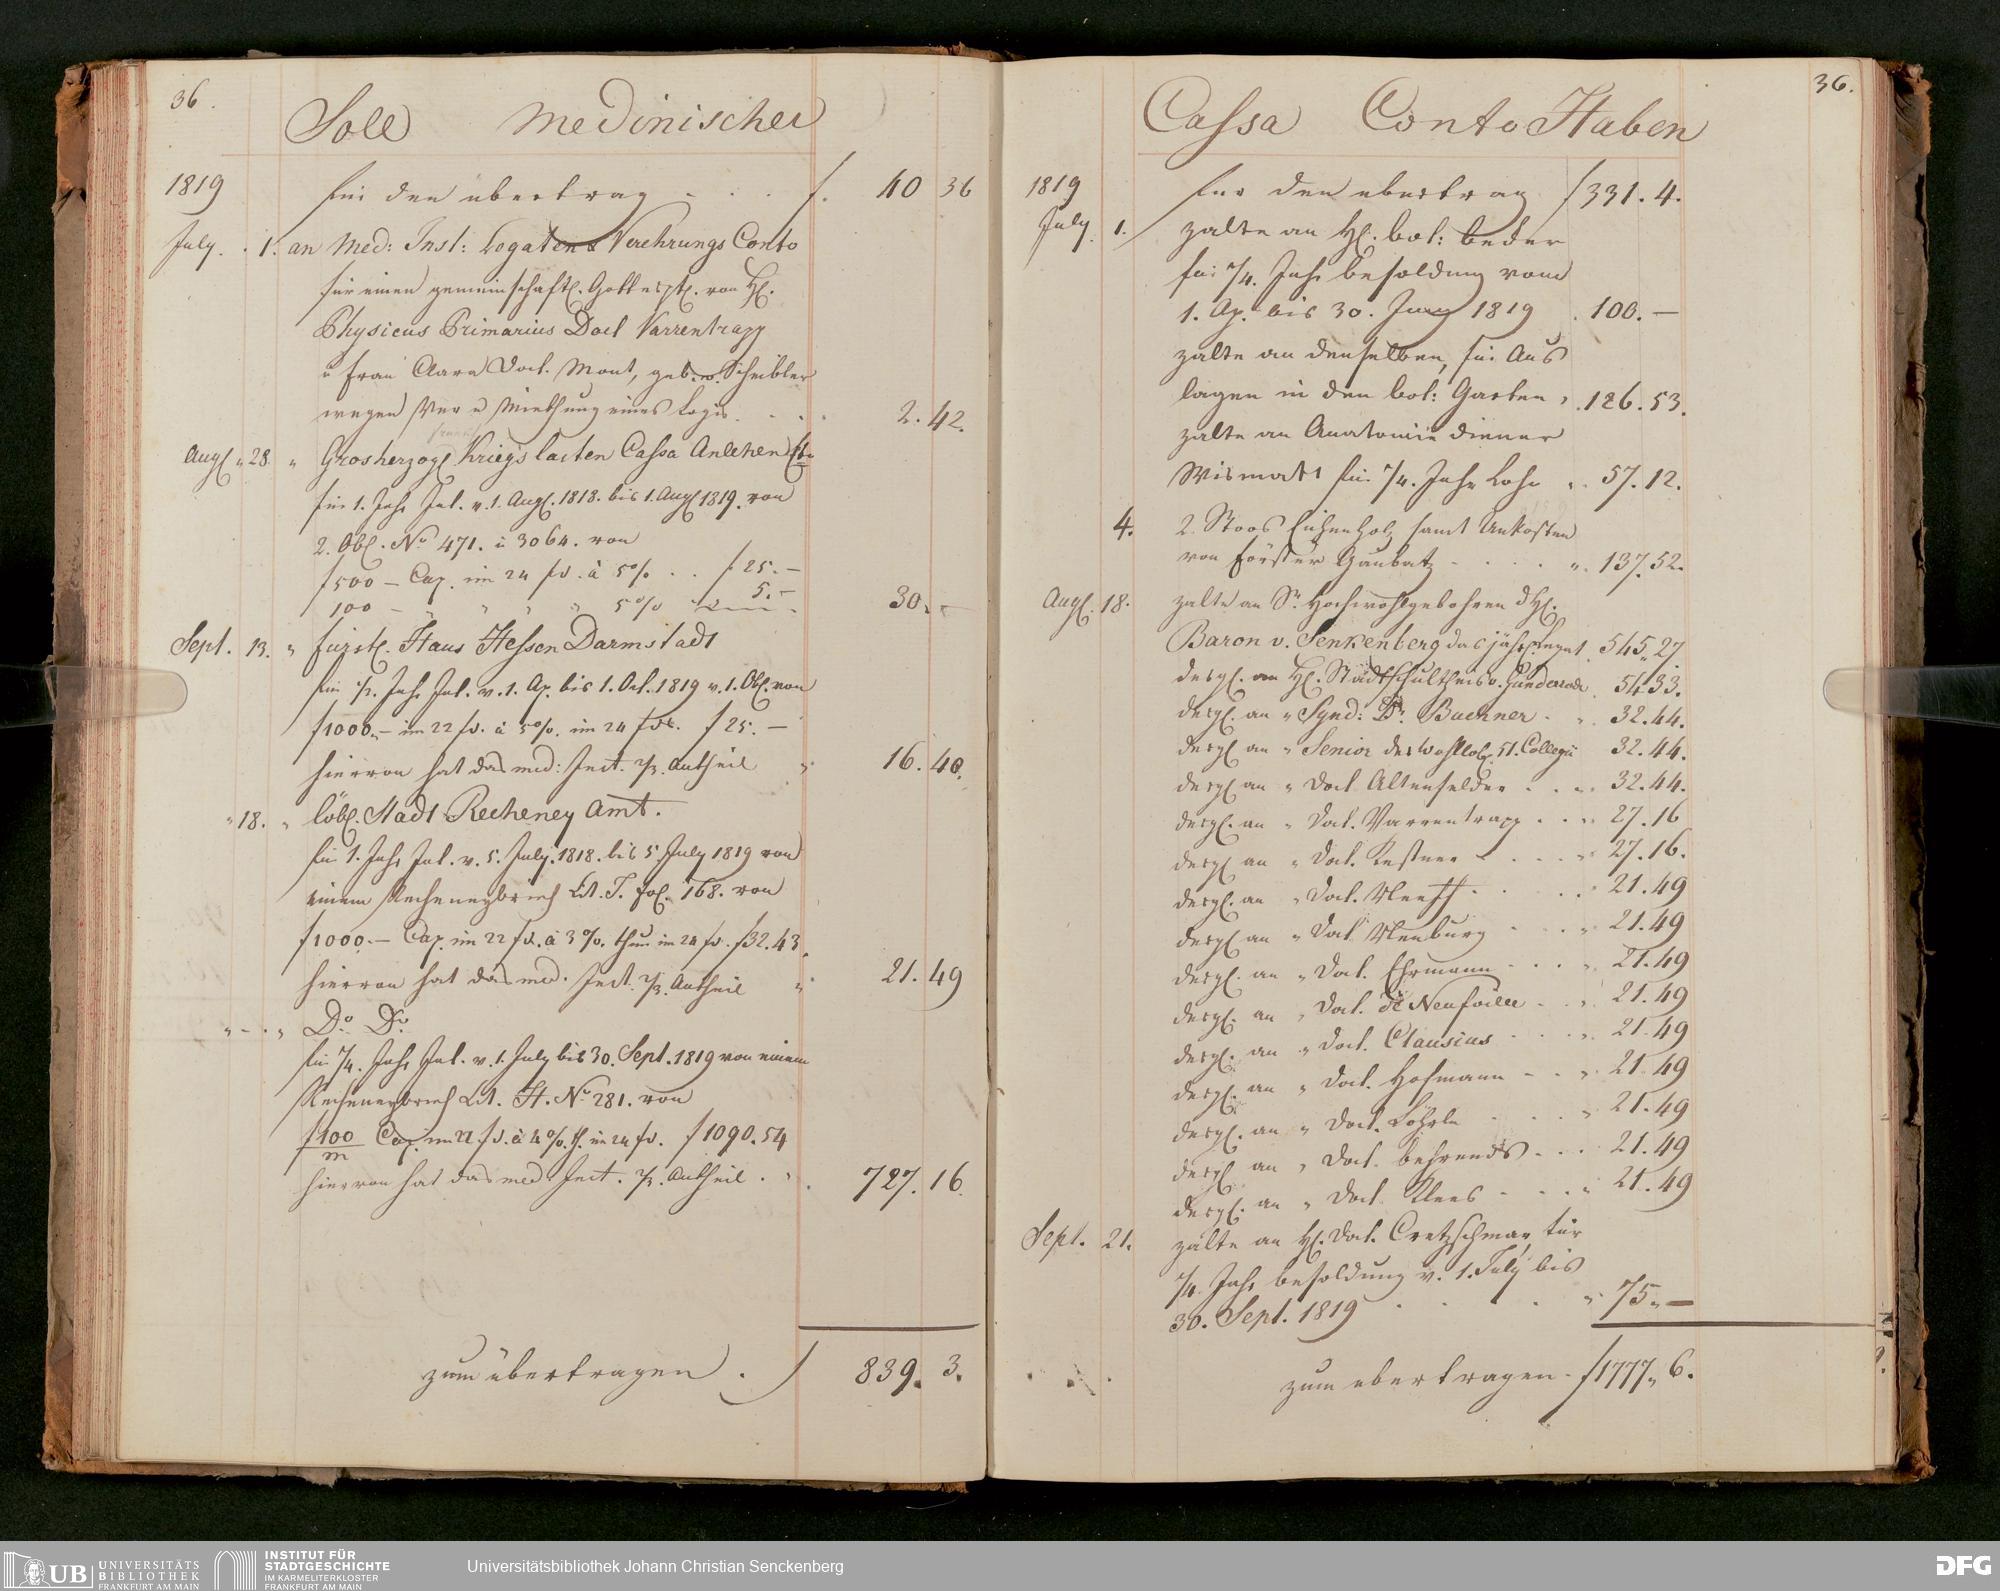 36.
Soll Medinischer
1819 für den übertrag f. 40 36
July. 1. an Med: Inst: Legaten & Verehrungs Conto
für einen gemeinschaftl. Gottespf. von H.
Physicus Primarius Doct Varrentrapp
u Frau Clara Doct. Mont, geb. v. Scheibler
wegen Ver u Miethung eines Logis 2. 42.
Augl " 28. " Grosherzogl Kriegs lasten Cassa Anlehen
für 1. Jahr Int. v. 1. Augl. 1818. bis 1. Augl 1819. von
2. Obl. No 471. u 3064. von
f 500 — Cap. im 24 fs. à 5% . . f 25. —
100 — " " " " 5% 5. — 30. —
Sept. 13. " fürstl. Haus Hessen Darmstadt
für 1/2. Jahr Int. v. 1. Ap. bis 1. Oct. 1819 v. 1. Obl. von
f 1000. — im 22 fs. à 5%. im 24 fs. f 25. —
hiervon hat das med: Inst. 2/3. Antheil " 16. 40.
" 18. " löbl. Stadt Recheney Amt.
für 1. Jahr Int. v. 5. July. 1818. bis 5 July 1819 von
einem Recheneybrief Lit. T. fol. 168. von
f 1000. — Cap. im 22 fs. à 3%. thun im 24 fs. f 32. 43.
hiervon hat das med. Inst. 2/3. Antheil " 21. 49
" — . " Do Do
für 1/4. Jahr Int. v. 1. July bis 30. Sept. 1819 von einem
Recheneybrief Lit. H. No 281. von
f 100/m Cap. im 22. fs. à 4%. th. im 24 fs. f 1090. 54
hiervon hat das med Inst. 2/3. Antheil . " 727. 16.
zum übertragen . f 839. 3.
36.
Cassa Conto Haben
1819 für den übertrag f 331. 4.
July. 1. zalte an H. bot: Beder
für 1/4. Jahr besoldung vom
1. Ap. bis 30. Juny 1819 . 100. —
zalte an denselben, für Aus
lagen in den bot: Garten " . 126. 53.
zalte an Anatomie diener
Wismatt für 1/4. Jahr Lohn " . 57. 12.
4. 2. Stoos Eichenholz samt Unkosten
von Förster Gaubatz . . . . " . 137. 52.
Augl. 18. zalte an Sr. Hochwohlgebohren d H.
Baron v. Senkenberg das jährl. Legat . 545. 27.
desgl. an H. Stadtschultheis v. Günderrode . 54 33.
desgl. an " Synd: Dr. Buchner . " . 32. 44.
desgl an " Senior des wohllobl. 51. Collegii 32. 44.
desgl an " Doct Altenfelder . . " . 32. 44.
desgl. an " Doct. Varrentrapp . . " . 27. 16
desgl an " Doct. Kestner . . . " 27. 16.
desgl. an " Doct. Neeff . . . . 21. 49
desgl an " Doct Neuburg . . " 21. 49
desgl. an " Doct. Ehrmann . . . " . 21. 49
desgl. an " Doct. de Neufville . . " . 21. 49
desgl. an " Doct. Clausius . . " . 21. 49
desgl. an " Doct. Hofmann . . " 21. 49
desgl. an " Doct. Löhrle . . . " 21. 49
desgl an " Doct. behrends . . . 21. 49
desgl. an " Doct. Klees . . . " 21. 49
Sept. 21. zalte an H. Doct. Cretzschmar für
1/4. Jahr besoldung v. 1. July bis
30. Sept. 1819 . . . . " 75. —
zum übertragen . f 1777. 6.
UB UNIVERSITÄTS BIBLIOTHEK FRANKFURT AM MAIN
INSTITUT FÜR STADTGESCHICHTE IM KARMELITERKLOSTER FRANKFURT AM MAIN
Universitätsbibliothek Johann Christian Senckenberg
DFG